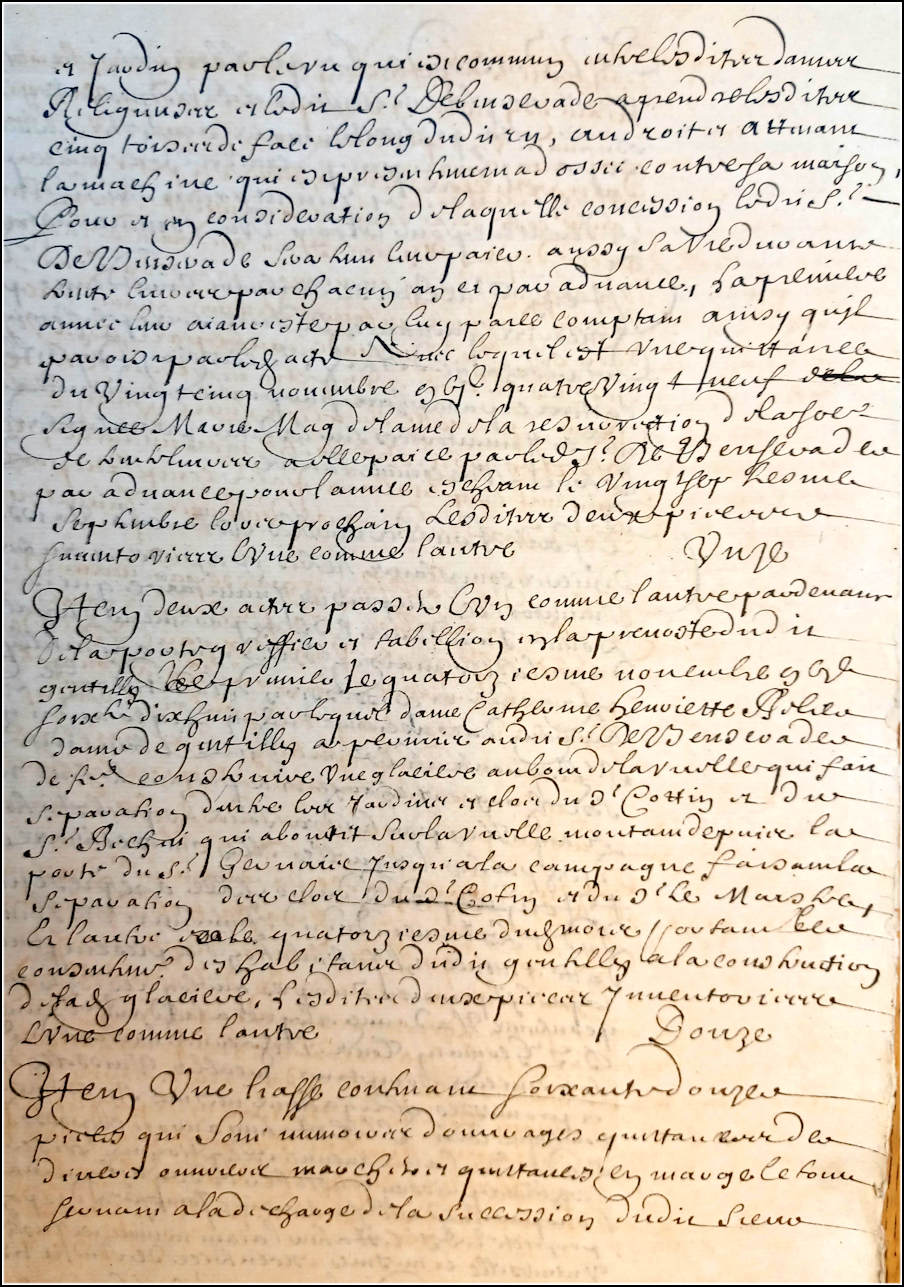 et Jardin par le ru qui est commun entre lesdites dames
Religieuses et ledit Sr. De Benserade a prendre lesdites
cinq toises de face le long dudit ru, au droit et attenant
la machine qui est presentement adossée contre sa maison,
Pour et en consideration de laquelle concession ledit Sr.
De Benserade sera tenu leur paier aussy sa vie durante
trente livres par chacun an et par advance, la premiere
année leur aiant esté par luy paiée comptant ainsy qu'il
paroist par led acte Ensuite lequel est une quittance
du vingt cinq novembre gbic quatre vingt neuf de la
signée Marie Magdelaine de la resurrection de la soe
de trente livres a elle paiée par led Sr. De Benserade
par advance pour l'année escheant le vingt sept
septembre lors prochain Lesdites deux pieces
Inventoriées L'Une comme l'autre Unze
Item deux actes passés L'Un comme l'autre pardevant
Delaportery greffier et tabellion en la prevosté dudit
gentilly Le premier le quatorziesme novembre gbic
soixte dix huit par lequel dame Catherine Henriette
dame de gentilly a permis audit Sr. De Benserade
de fre construire Une glaciere au bout de la ruelle qui fait
separation d'entre les Jardins et clos du Sr Cottin et du
Sr. Bechet qui aboutit sur la ruelle montant depuis la
porte du Sr. Gervaise Jusqu'a la campagne faisant la
separation des clos du Sr. Cotin et du Sr. Le Maistre,
Et l'autre le quatorziesme dud mois portant le
consentemt. des habitans dudit gentilly a la construction
de lad glaciere, Lesdites deux pieces Inventoriées
L'Une comme l'autre Douze
Item Une liasse contenant soixante douze
pieces qui sont memoires d'ouvrages quittances de
divers ouvriers marchés et quittances en marge le tout
servant a la decharge de la succession dudit sieur